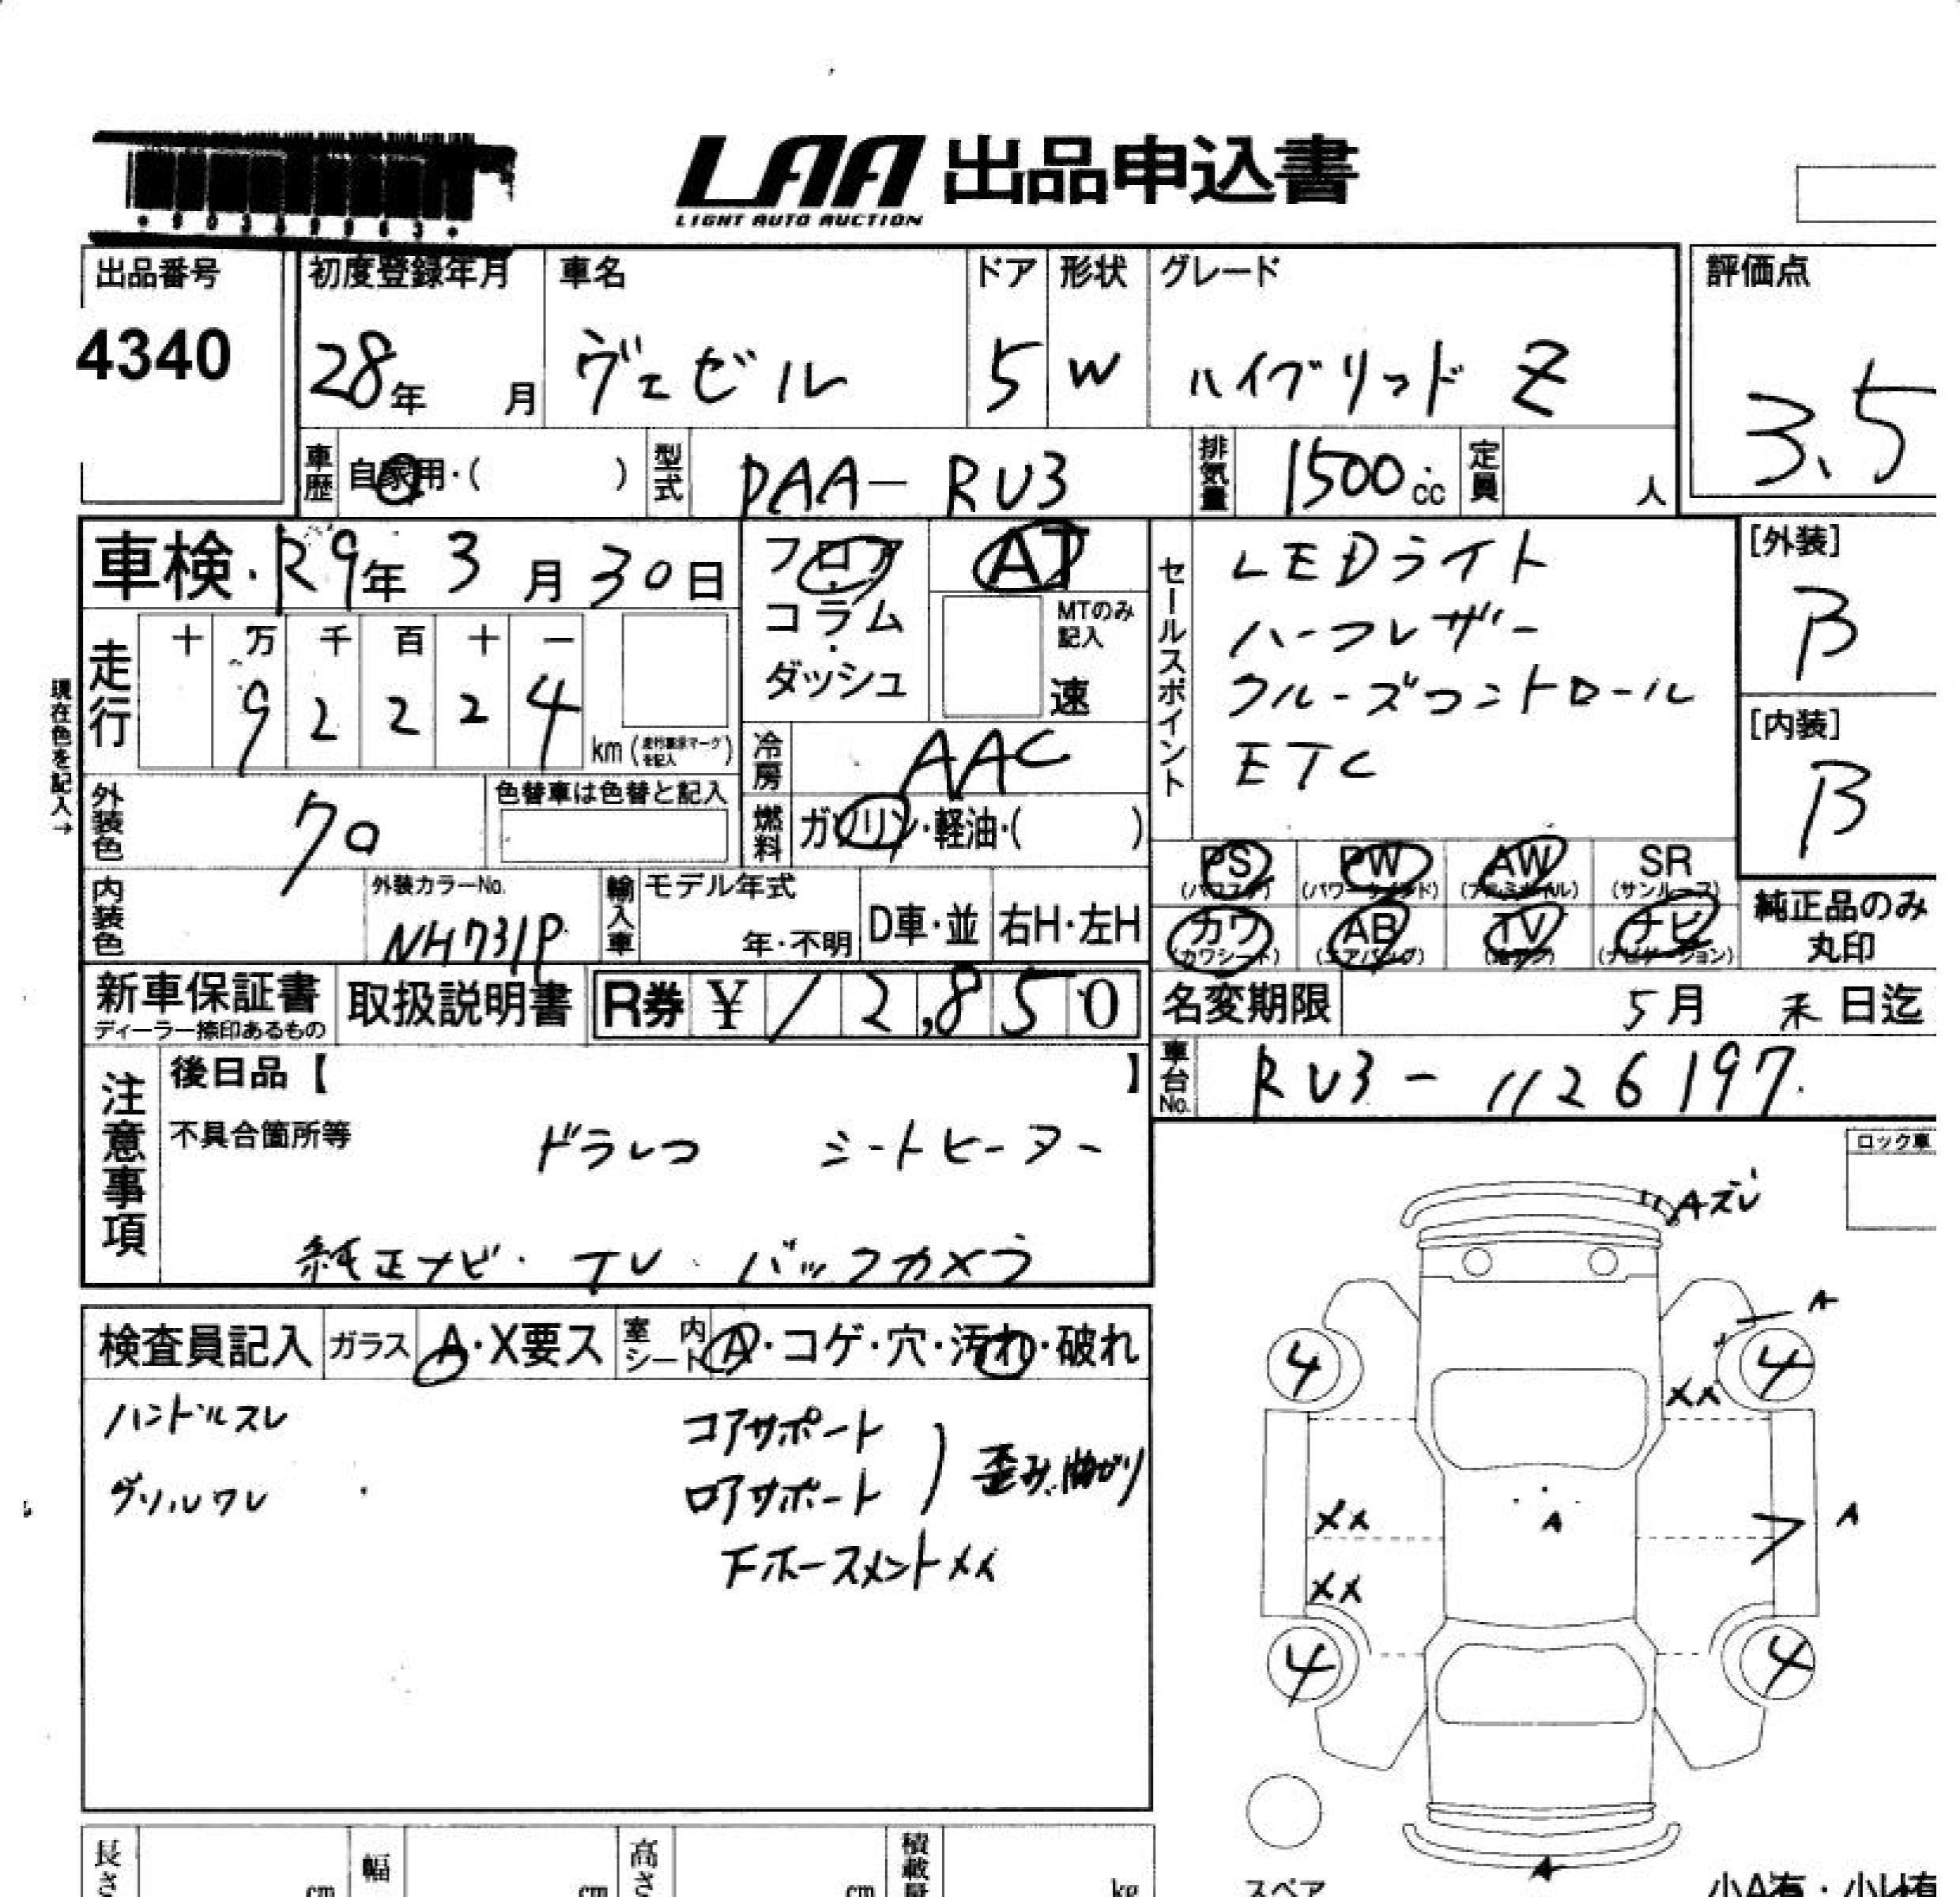 LAA 出品申込書
LIGHT AUTO AUCTION
出品番号
4340
初度登録年月
28年 月
車名
ヴェゼル
ドア
5
形状
W
グレード
ハイブリッド Z
評価点
3.5
車歴 自家用・( )
型式 DAA-RU3
排気量 1500cc
定員 人
車検 R9年 3月 30日
フロア・
コラム・
ダッシュ
AT
MTのみ
記入
速
セールスポイント
LEDライト
ハーフレザー
クルーズコントロール
ETC
[外装]
B
[内装]
B
現在色を記入→
走行
十 万 千 百 十 一
9 2 2 2 4
km
冷房 AAC
燃料 ガソリン・軽油・( )
外装色 クロ
色替車は色替と記入
内装色
外装カラーNo.
NH731P
輸入車 モデル年式
年・不明
D車・並 右H・左H
PS PW AW SR
(パワステ) (パワーウインド) (アルミホイル) (サンルーフ)
カワ AB TV ナビ
(カワシート) (エアバッグ) (ナビゲーション)
純正品のみ
丸印
新車保証書
ディーラー捺印あるもの
取扱説明書
R券 ¥12,850
名変期限 5月 末日迄
車台No. RU3-1126197
注意事項
後日品【 】
不具合箇所等
ドラレコ シートヒーター
純正ナビ・TV・バックカメラ
ロック車
検査員記入 ガラス A・X要ス 室内シート A・コゲ・穴・汚れ・破れ
ハンドルスレ
グリルワレ
コアサポート
ロアサポート
歪み、曲がり
Fホースメントメイ
Aズレ
A
4 4
XX
XX A A
XX
4 4
A
スペア
小A有・小U有
長さ cm 幅 cm 高さ cm 積載量 kg